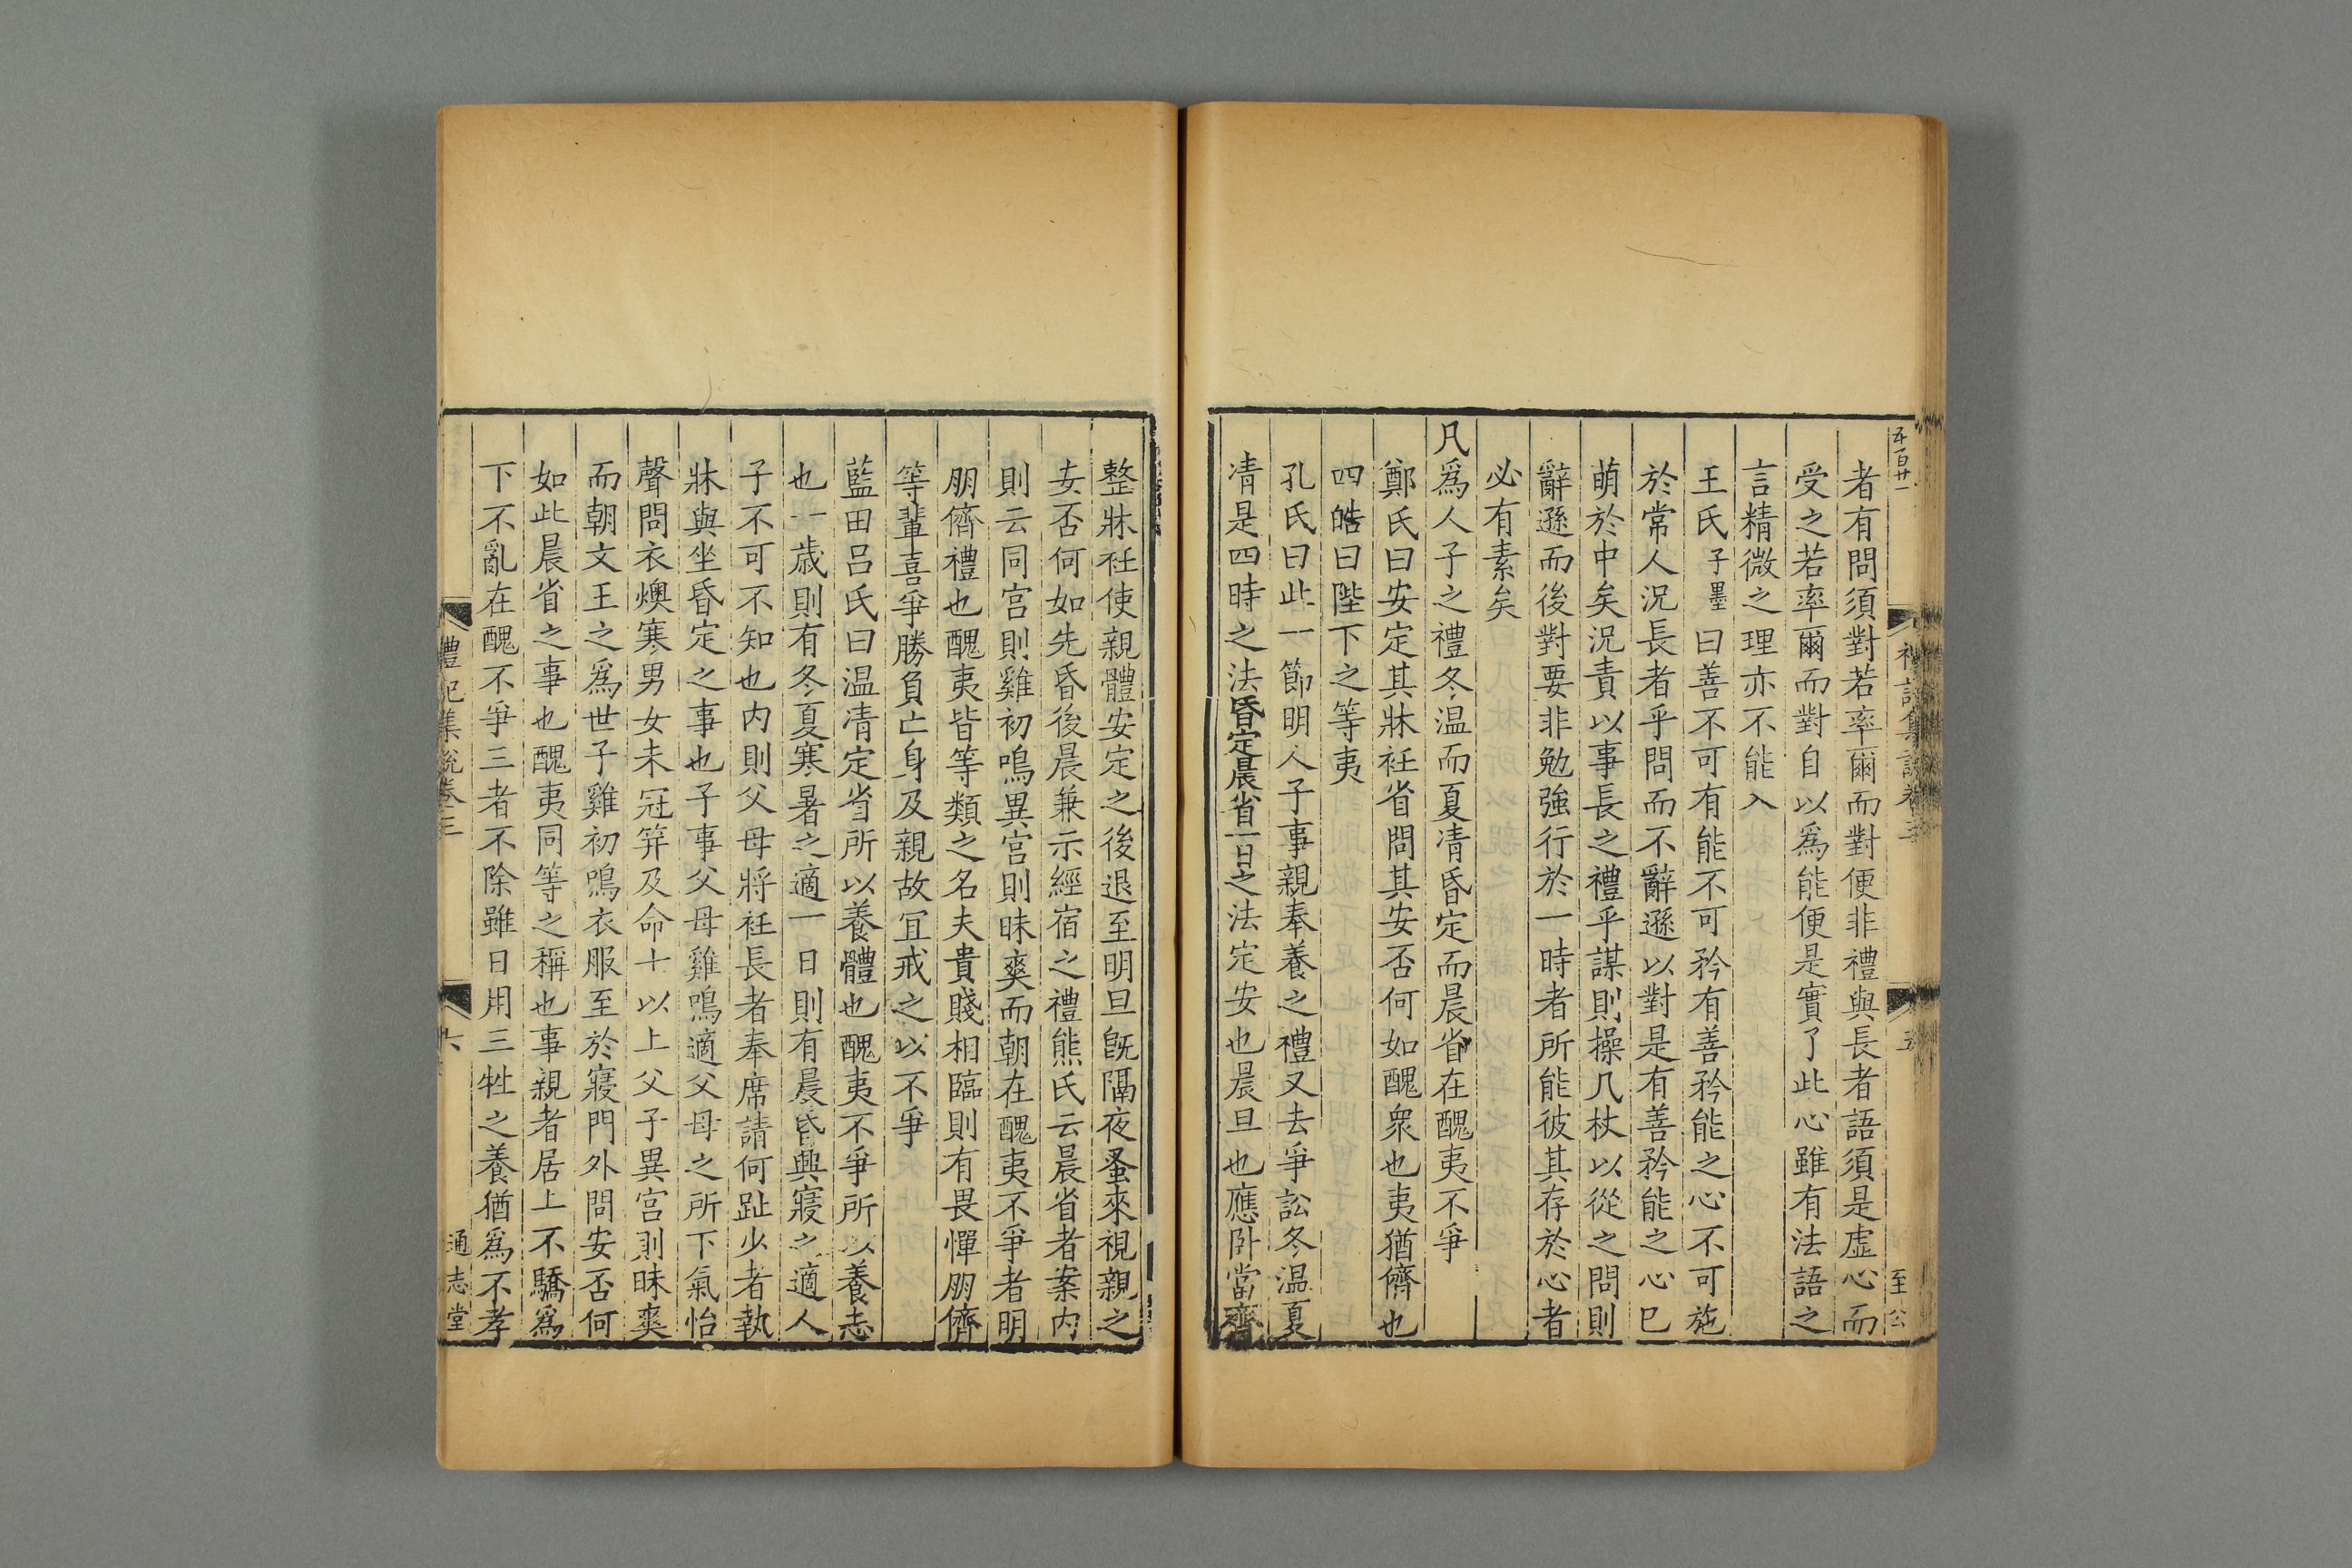 五百廿一
禮記集說卷三
五
至公
者有問須對若率爾而對便非禮與長者語須是虛心而
受之若率爾而對自以爲能便是實了此心雖有法語之
言精微之理亦不能入
王氏子墨曰善不可有能不可矜有善矜能之心不可施
於常人況長者乎問而不辭遜以對是有善矜能之心已
萌於中矣況責以事長之禮乎謀則操几杖以從之問則
辭遜而後對要非勉強行於一時者所能彼其存於心者
必有素矣
凡爲人子之禮冬温而夏凊昏定而晨省在醜夷不爭
鄭氏曰安定其牀衽省問其安否何如醜衆也夷猶儕也
四皓曰陛下之等夷
孔氏曰此一節明人子事親奉養之禮又去爭訟冬温夏
凊是四時之法昏定晨省一日之法定安也晨旦也應卧當齊
整牀衽使親體安定之後退至明旦旣隔夜蚤來視親之
安否何如先昏後晨兼示經宿之禮熊氏云晨省者案内
則云同宫則雞初鳴異宫則昧爽而朝在醜夷不爭者明
朋儕禮也醜夷皆等類之名夫貴賤相臨則有畏憚朋儕
等輩喜爭勝負亡身及親故宜戒之以不爭
藍田吕氏曰温凊定省所以養體也醜夷不爭所以養志
也一歲則有冬夏寒暑之適一日則有晨昏興寢之適人
子不可不知也内則父母將衽長者奉席請何趾少者執
牀與坐昏定之事也子事父母雞鳴適父母之所下氣怡
聲問衣燠寒男女未冠笄及命士以上父子異宫則昧爽
而朝文王之爲世子雞初鳴衣服至於寢門外問安否何
如此晨省之事也醜夷同等之稱也事親者居上不驕爲
下不亂在醜不爭三者不除雖日用三牲之養猶爲不孝
禮記集說卷三
六
通志堂